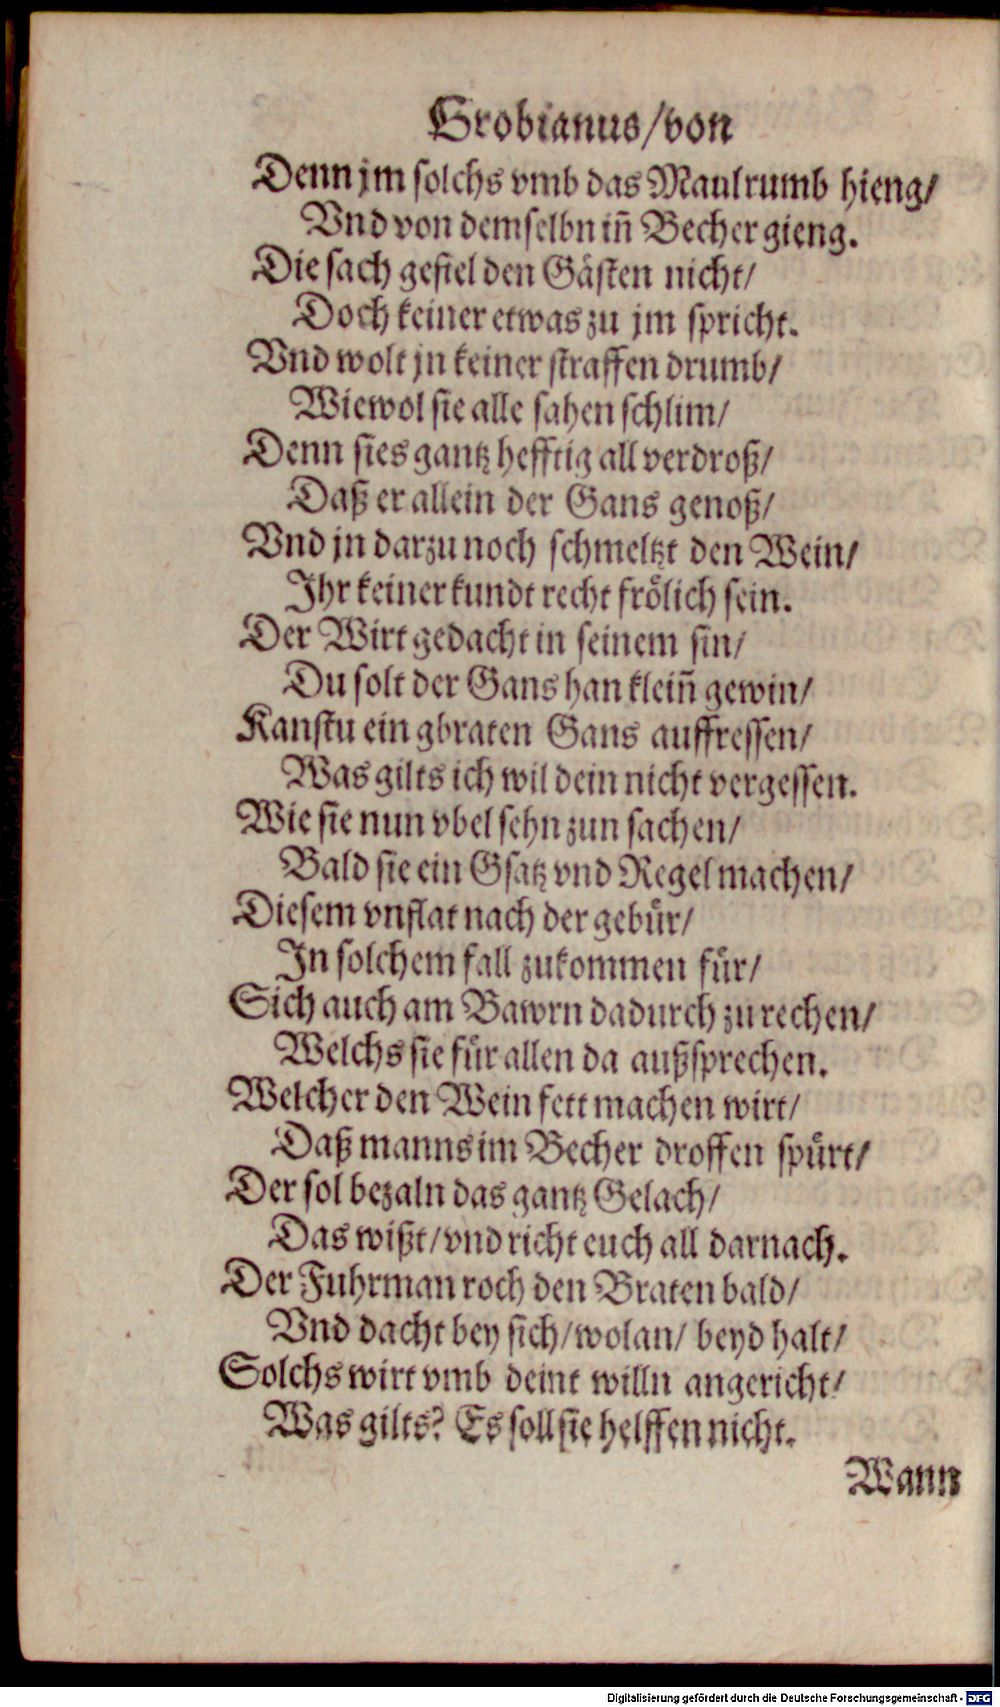 Grobianus/von
Denn jm solchs vmb das Maulrumb hieng/
Vnd von demselbn iñ Becher gieng.
Die sach gefiel den Gästen nicht/
Doch keiner etwas zu jm spricht.
Vnd wolt jn keiner straffen drumb/
Wiewol sie alle sahen schlim/
Denn sies gantz hefftig all verdroß/
Daß er allein der Gans genoß/
Vnd jn darzu noch schmeltzt den Wein/
Ihr keiner kundt recht frölich sein.
Der Wirt gedacht in seinem sin/
Du solt der Gans han kleiñ gewin/
Kanstu ein gbraten Gans auffressen/
Was gilts ich wil dein nicht vergessen.
Wie sie nun vbel sehn zun sachen/
Bald sie ein Gsatz vnd Regel machen/
Diesem vnflat nach der gebür/
In solchem fall zukommen für/
Sich auch am Bawrn dadurch zu rechen/
Welchs sie für allen da außsprechen.
Welcher den Wein fett machen wirt/
Daß manns im Becher droffen spürt/
Der sol bezaln das gantz Gelach/
Das wißt/vnd richt euch all darnach.
Der Fuhrman roch den Braten bald/
Vnd dacht bey sich/wolan/ beyd halt/
Solchs wirt vmb deint willn angericht/
Was gilts? Es soll sie helffen nicht.
Wann
Digitalisierung gefördert durch die Deutsche Forschungsgemeinschaft - DFG